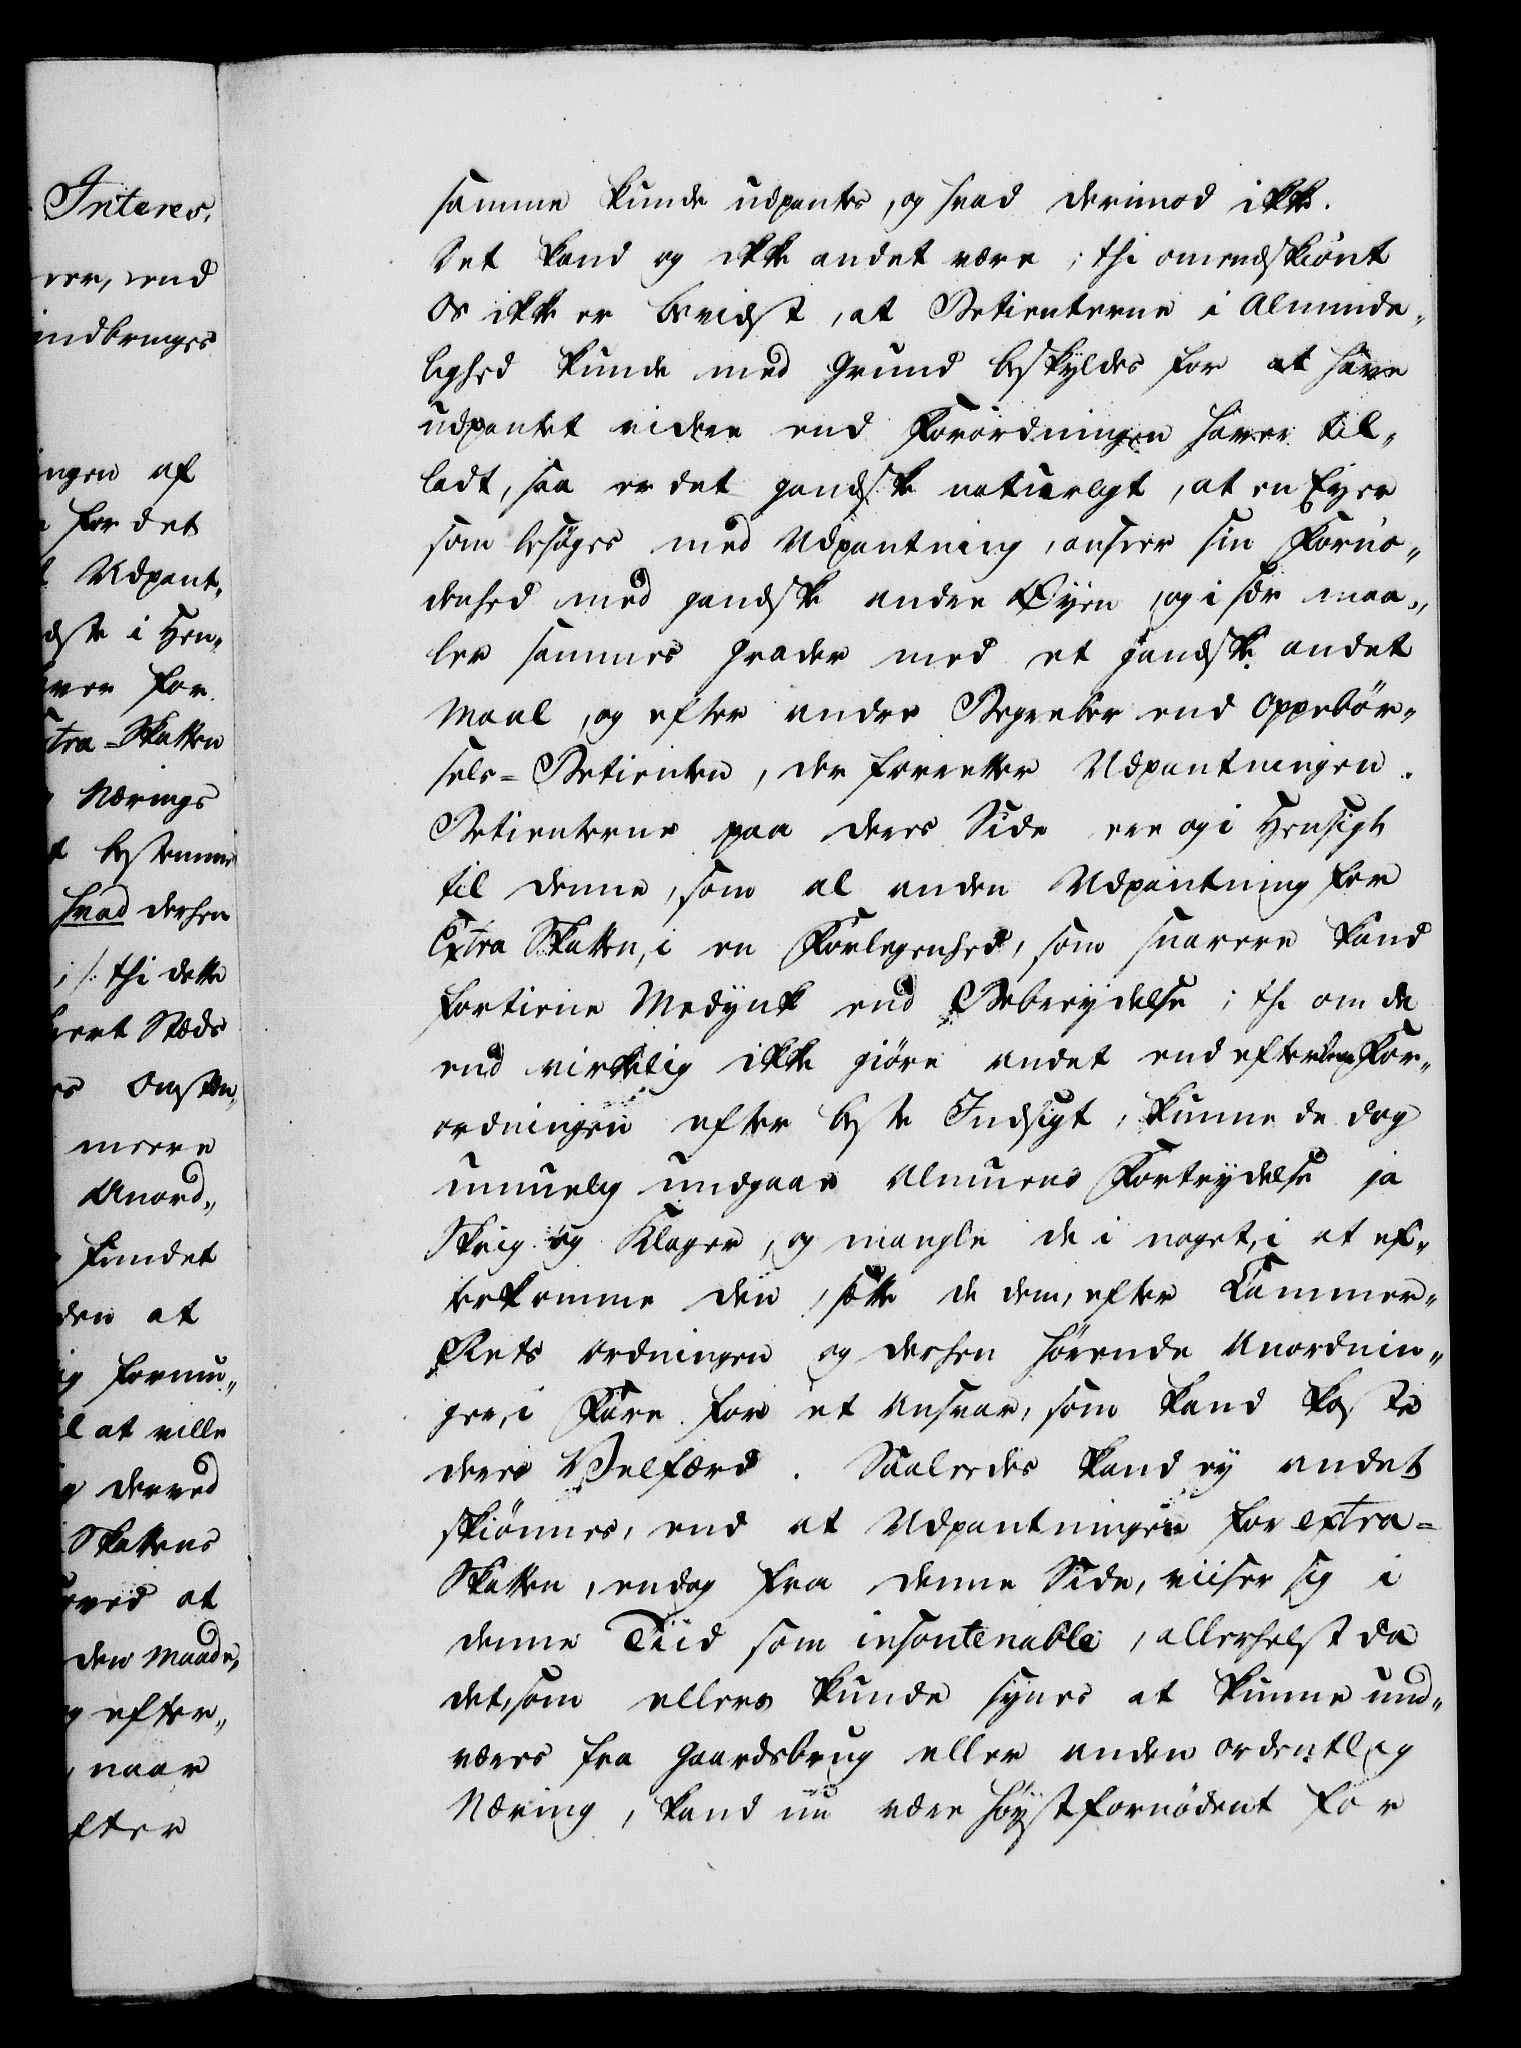 Interes,
ver, end
indbringes
ingen af
for det
Udpant„
dste i Hen„
ver for
xtra-Skatten
Nærings
t bestemme
hvad dersen
; /: thi dette
hvert Steds
es Omstæn„
meere
Anord„
fundet
den at
ig formu„
l at ville
g derved
Skattens
ved at
den Maade,
g efter„
naar
fter
samme kunde udpantes, og hvad derimod ikke.
Det kand og ikke andet være; thi omendskiönt
Os ikke er bevidst, at Betienterne i Alminde„
lighed kunde med Grund beskyldes for at have
udpantet videre end Forordningen haver til„
ladt, saa er det gandske naturligt, at en Eyer
som besöges med Udpantning, anseer sin Fornö„
denhed med gandske andre Øyen, og i sær maa„
ler sammes Grader med et gandske andet
Maal, og efter andre Begreber end Oppebör„
sels-Betienten, der forretter Udpantningen.
Betienterne paa deres Side ere og i Hensigt
til denne, som al anden Udpantning for
Extra Skatten, i en Forlegenhed, som snarere kand
fortiene Medynk end Bebreydelse; thi om de
end virkelig ikke giöre andet end efterleve For„
ordningen efter beste Indsigt, kunne de dog
umuelig undgaae Almuens Fortrydelse ja
Skrig og Klager, og mangle de i noget, i at ef„
terkomme den, sætte de dem, efter Cammer„
Rets Ordningen og dersen hörende Anordnin„
ger, i Fare for et Ansvar, som kand koste
deres Velfærd. Saaledes kand ey andet
skiönnes, end at Udpantningen for extra-
Skatten, endog fra denne Side, viiser sig i
denne Tiid som insoutenable, allerhelst da
det, som ellers kunde synes at kunne und„
væres fra Gaardsbrug eller anden ordentlig
Næring, kand nu være höystfornödent for